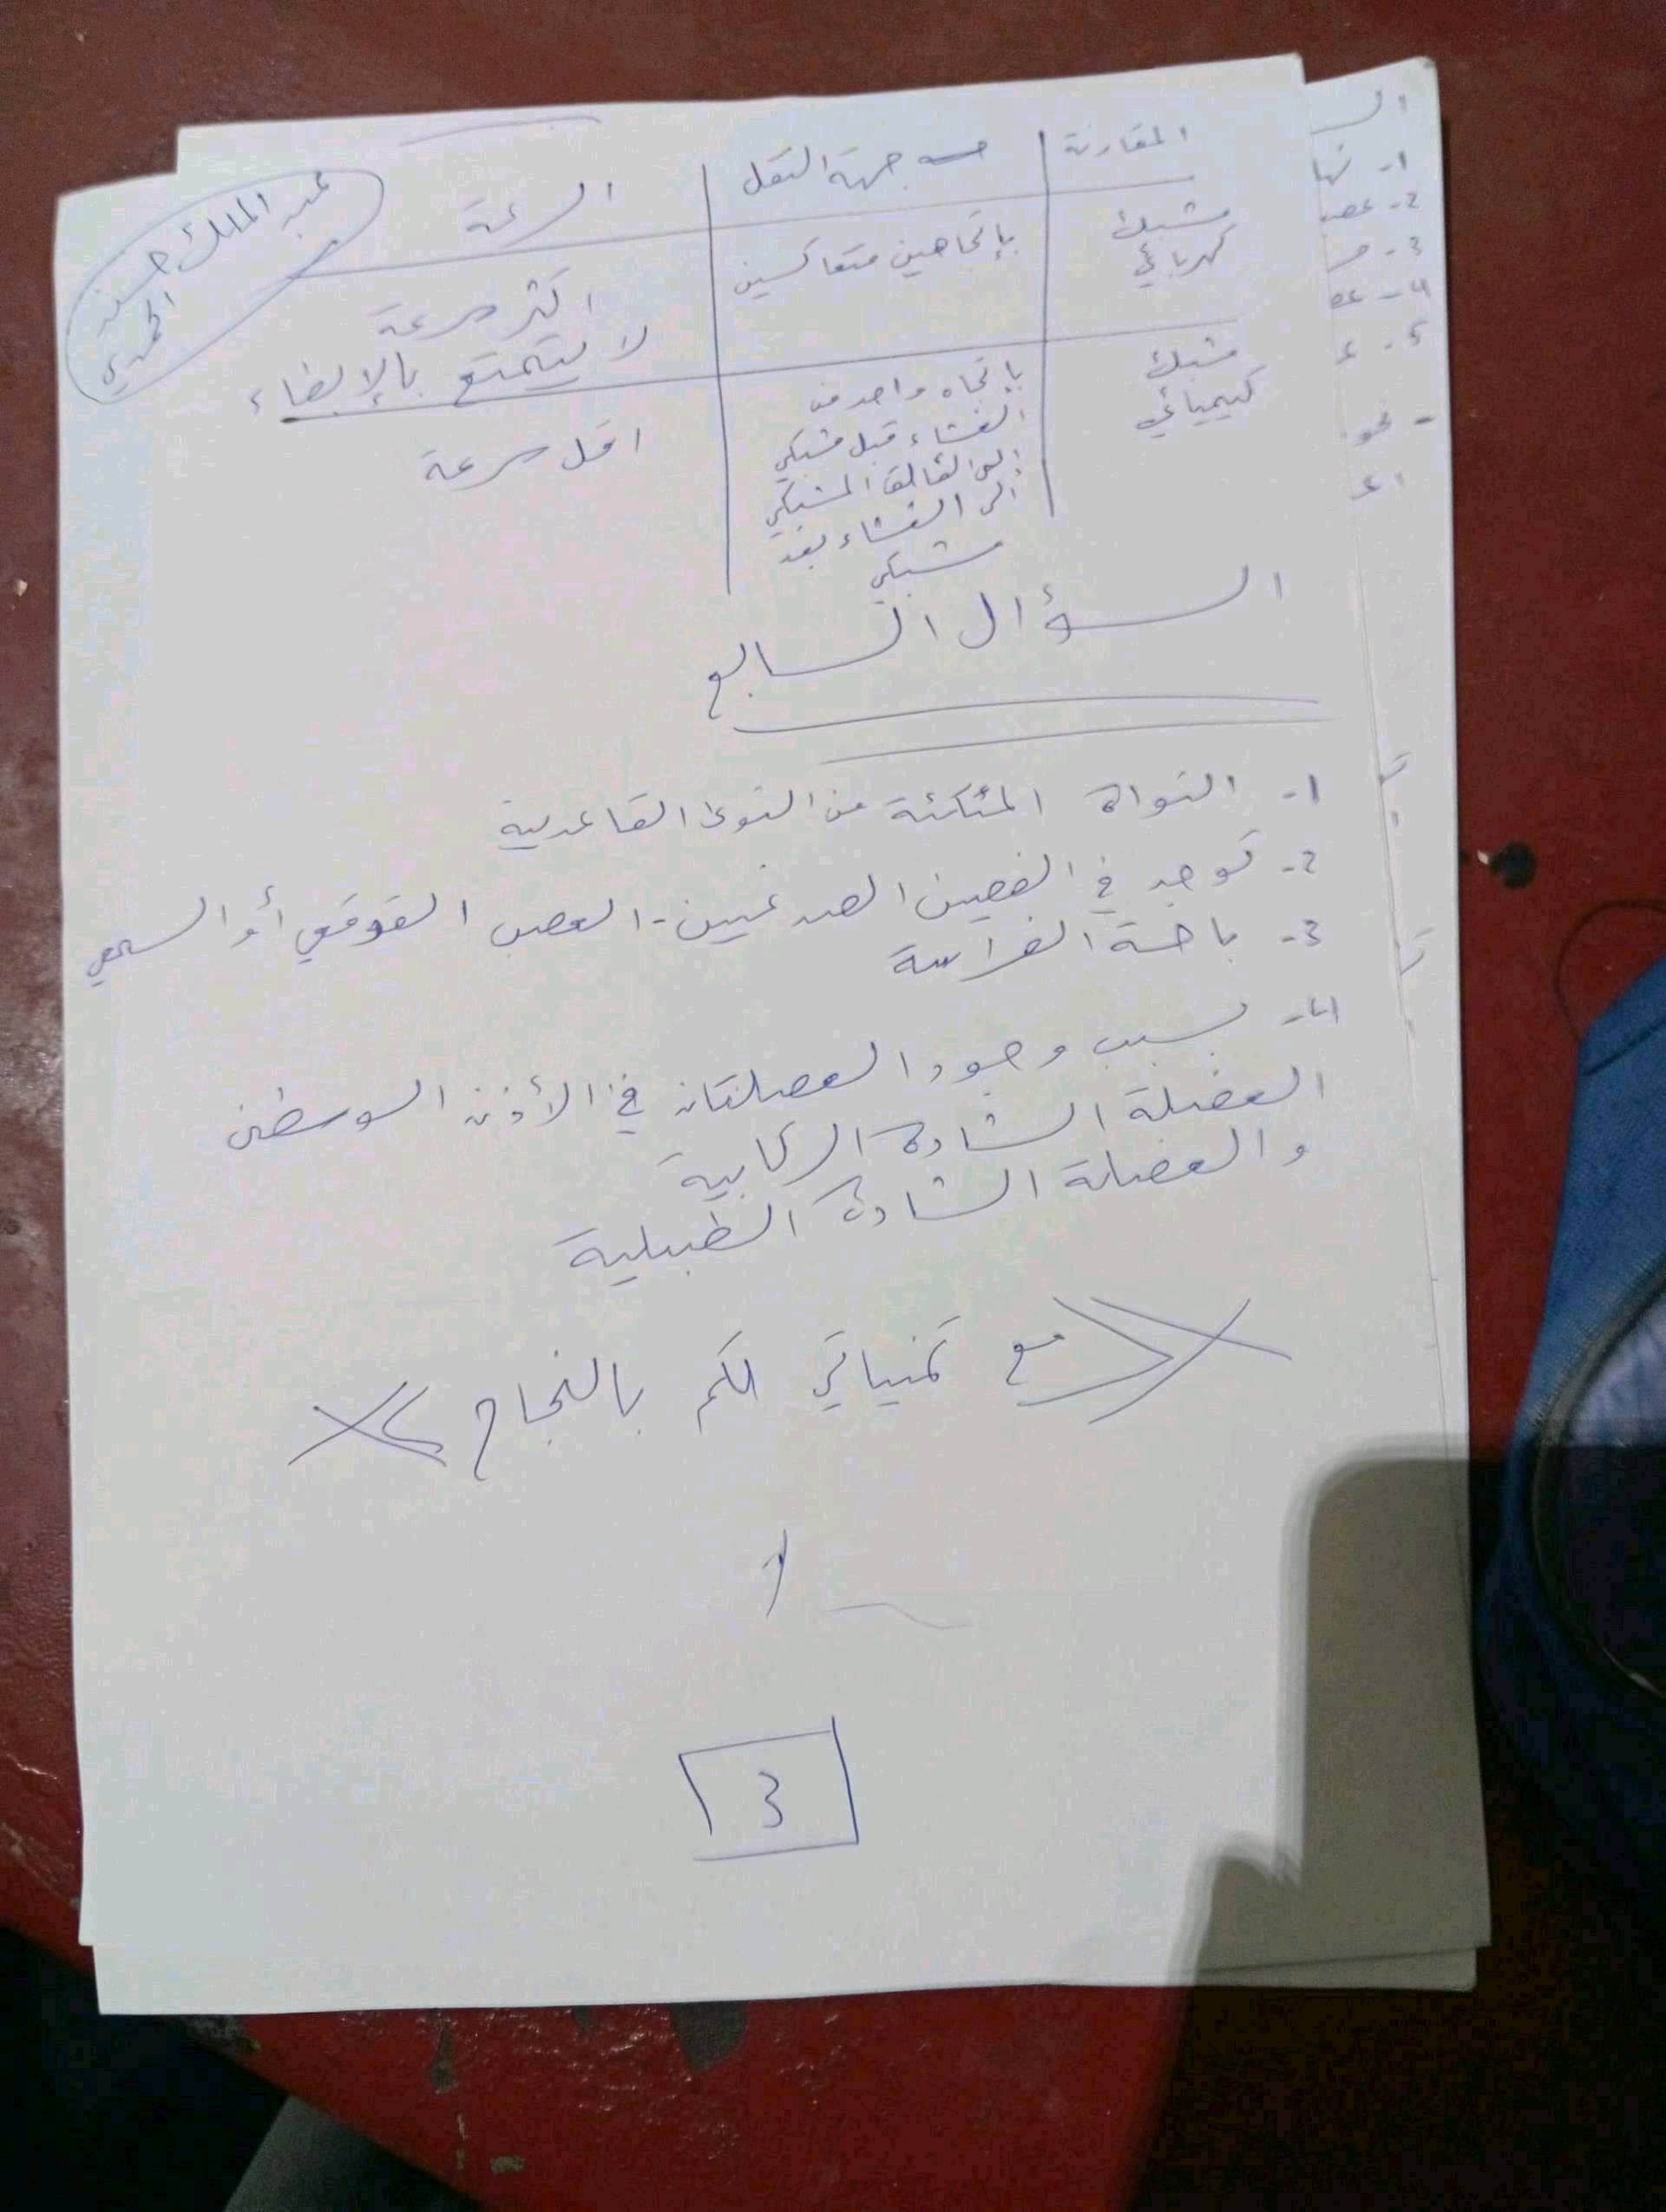 المقارنة من جهة النقل السرعة
عبد الملك حسن
الحمدي
مشبك
كهربائي
بإتجاهين متعاكسين
اكثر سرعة
لا يتمتع بالإبطاء
مشبك
كيميائي
بإتجاه واحد من
الغشاء قبل مشبكي
إلى الفالق المشبكي
الى الغشاء بعد
مشبكي
اقل سرعة
السؤال السابع
1- النواة المتكئة من النوى القاعدية
2- توجد في الفصين الصدغيين - العصب القوقعي أو السمعي
3- باحة الفراسة
4- بسبب وجود العضلتان في الأذن الوسطى
العضلة الشادة الركابية
والعضلة الشادة الطبلية
مع تمنياتي لكم بالنجاح
3